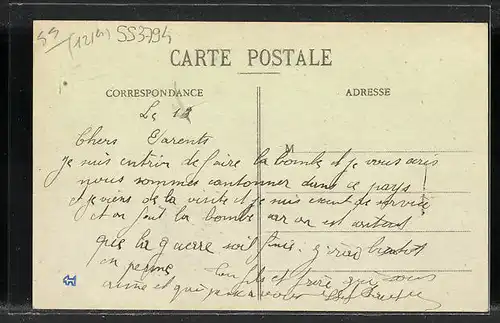 SS (12/01) SS3794
CARTE POSTALE
CORRESPONDANCE
ADRESSE
Le 12
M
Chers Parents
Je suis entrin de faire la bombe et je vous aris
nous sommes cantonner dans ce pays
et je viens de la visite et je suis exent de service
et on fait la bombe car on est
que la guerre soit finie. j'irai bientot
en perme, ton fils et frère qui vous
aime et qui pense a vous